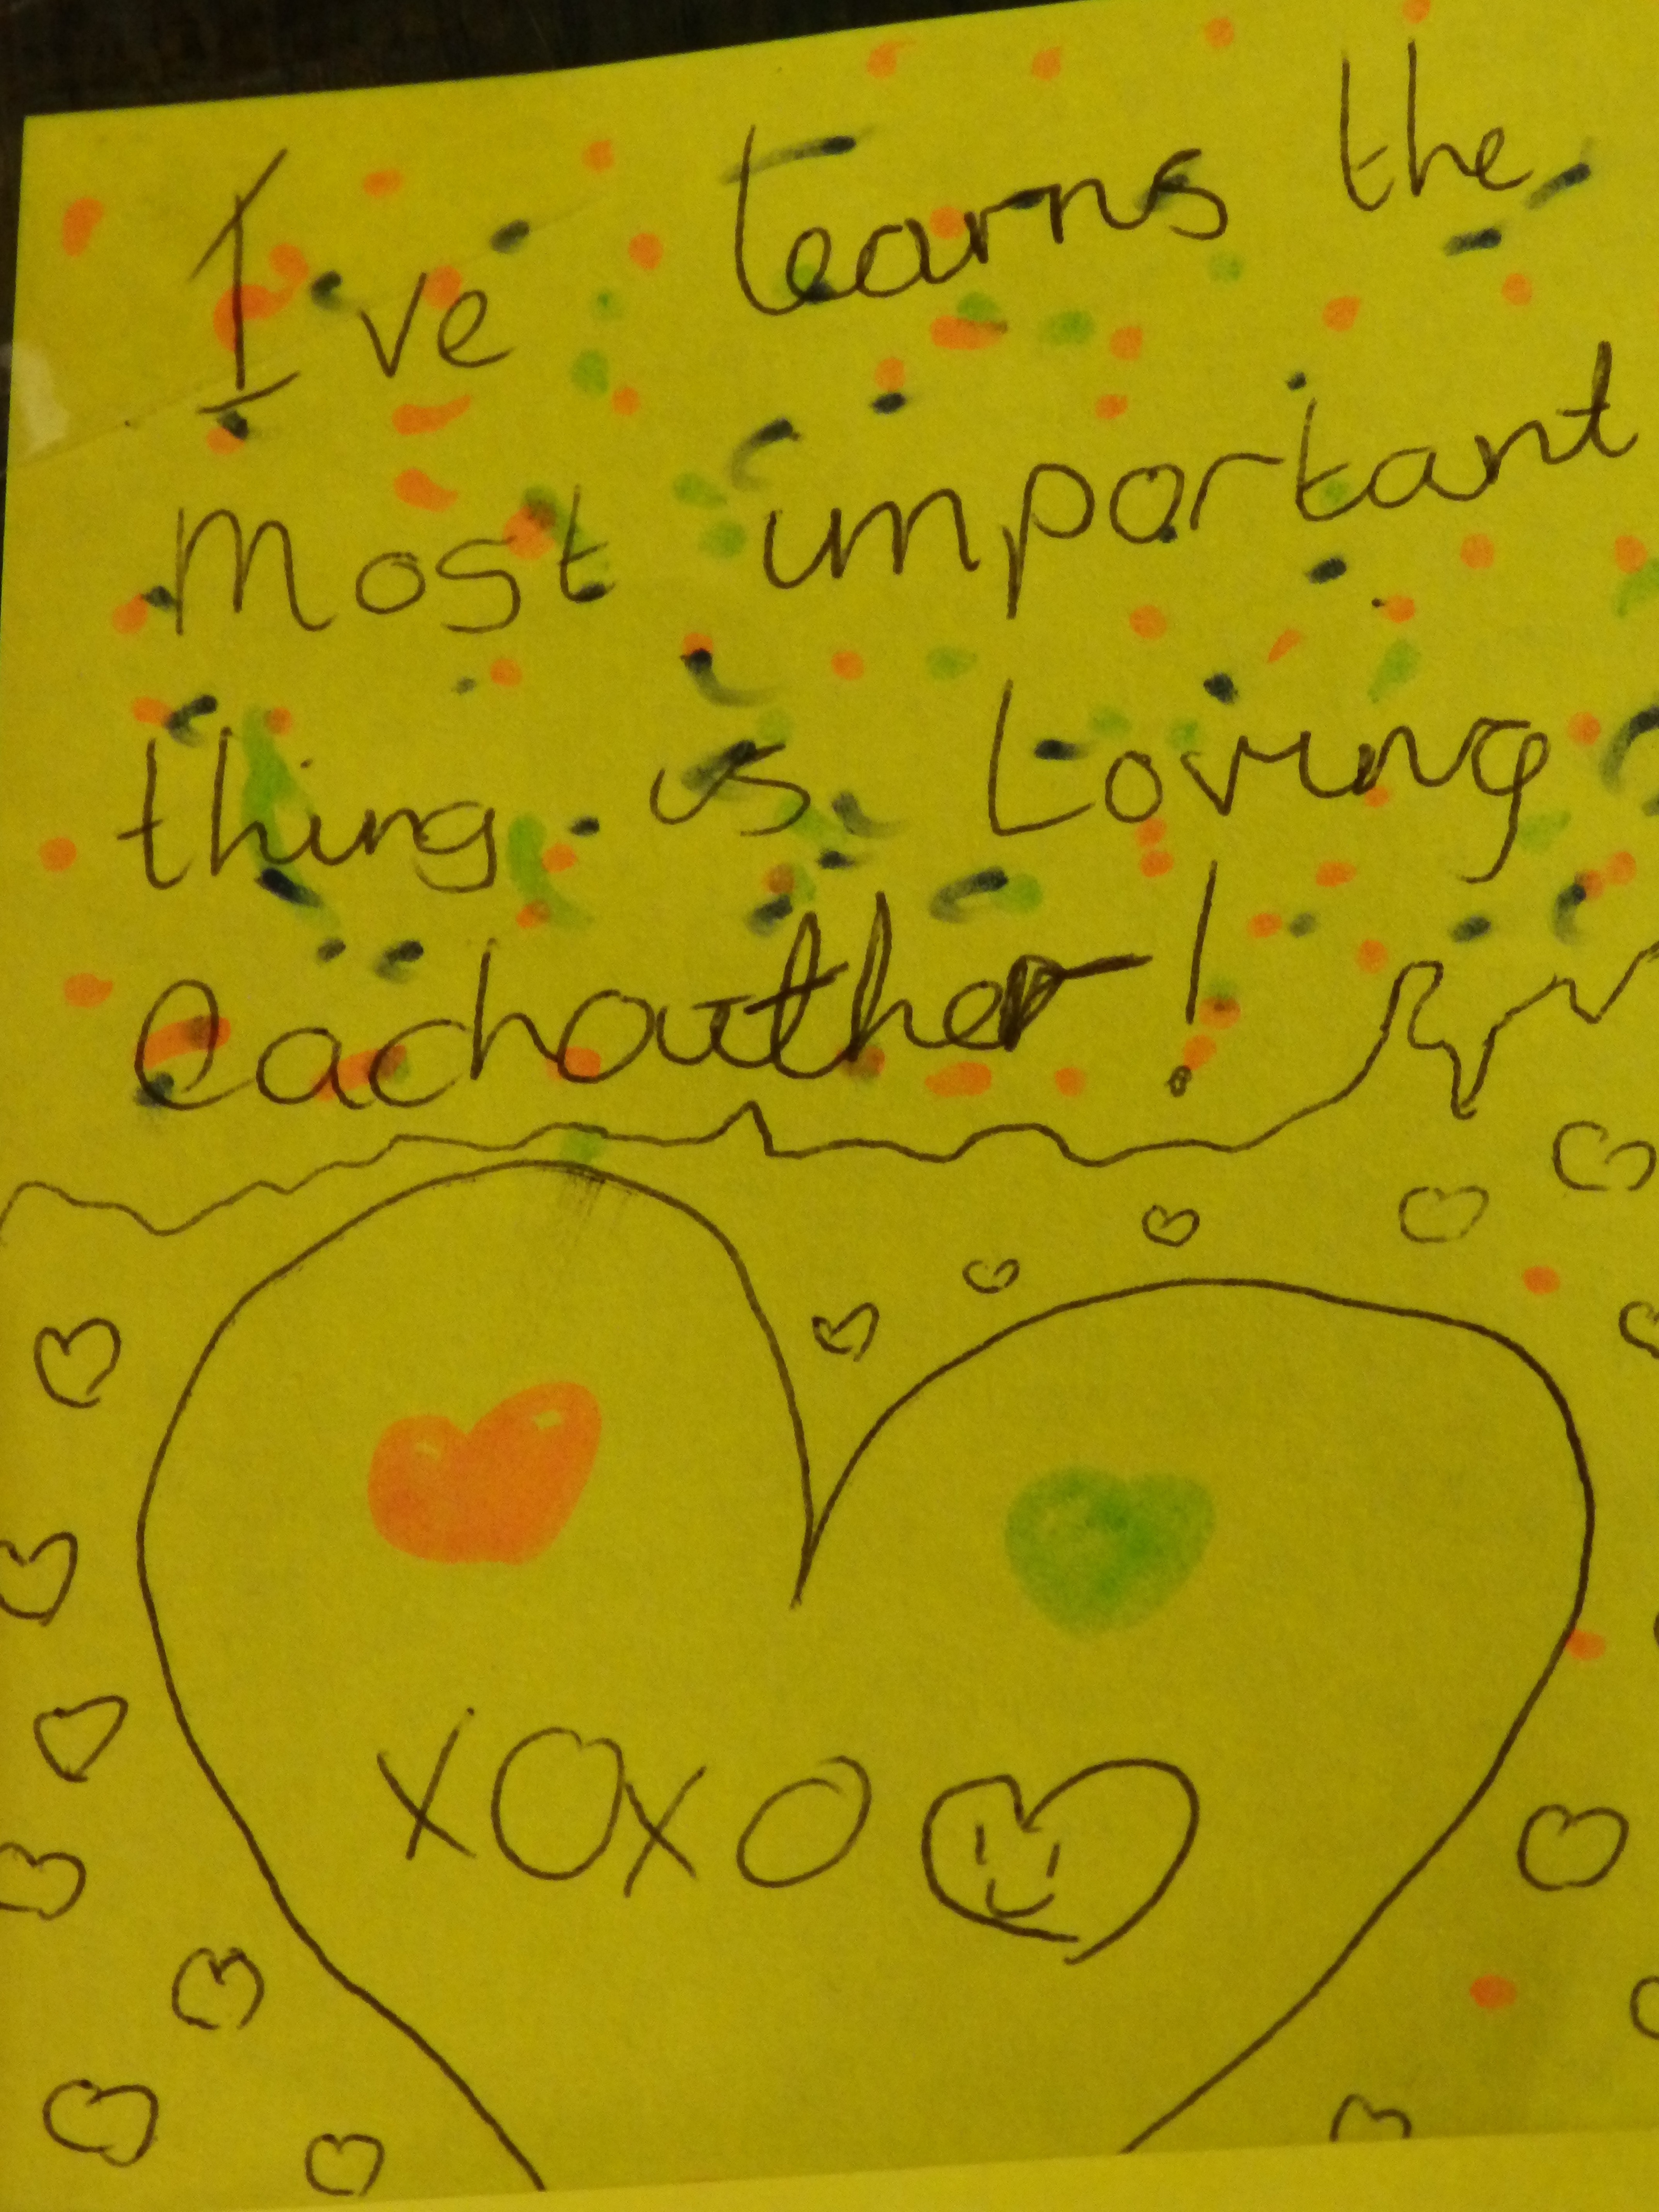 I've learns the
Most important
thing is Loving
eachouther!
XOXO